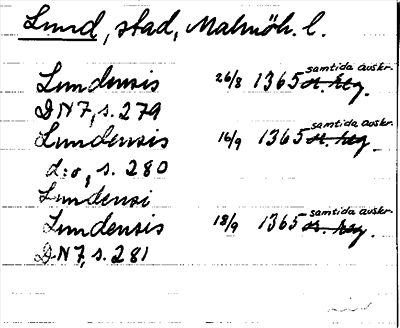 Lund, stad, Malmöh. l.
Lundensis 26/8 1365 samtida avskr.
DN 7, s. 279
Lundensis 16/9 1365 samtida avskr.
d:o, s. 280
Lundensi
Lundensis 18/9 1365 samtida avskr.
DN 7, s. 281